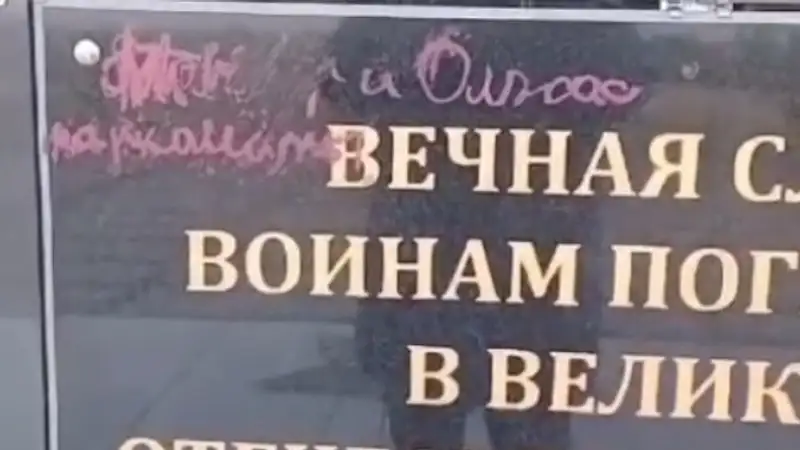 и Олжас
наркоманы
ВЕЧНАЯ СЛ
ВОИНАМ ПОГ
В ВЕЛИК
ОТЕЧ